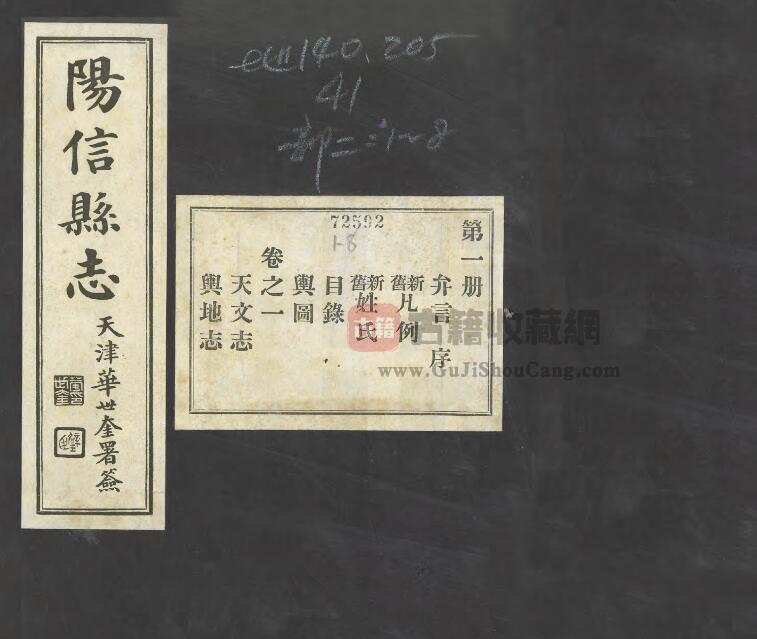 陽信縣志
天津華世奎署簽
140.205
41
72592
1-8
第一册
弁言 序
新舊凡例
新舊姓氏
目錄
輿圖
卷之一
天文志
輿地志
古籍
古籍收藏網
www.GuJiShouCang.com